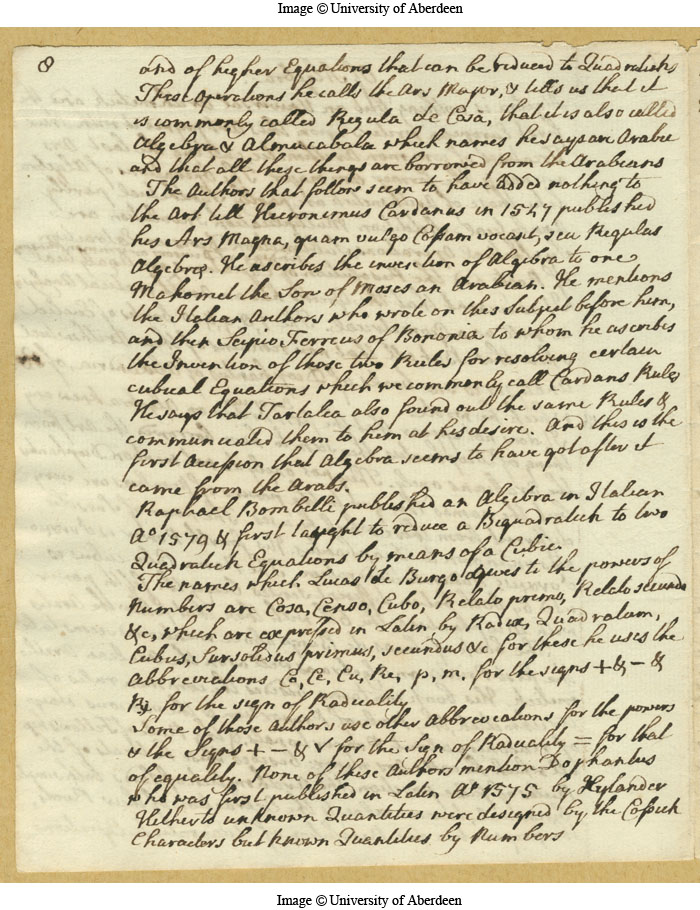 Image © University of Aberdeen
8
and of higher Equations that can be reduced to Quadraticks
These operations he calls the Ars Major, & tells us that it
is commonly called Regula de Cosa, that it is also called
Algebra & Almucabala which names he says are Arabic
and that all these things are borrowed from the Arabians
The Authors that follow seem to have added nothing to
the Art till Hieronimus Cardanus in 1547 published
his Ars Magna, quam vulgo Cossam vocant, seu Regulas
Algebræ. He ascribes the invention of Algebra to one
Mahomet the Son of Moses an Arabian. He mentions
the Italian Authors who wrote on this Subject before him,
and then Scipio Ferreus of Bononia to whom he ascribes
the Invention of those two Rules for resolving certain
cubical Equations which we commonly call Cardans Rules
He says that Tartalea also found out the same Rules &
communicated them to him at his desire. And this is the
first Accession that Algebra seems to have got after it
came from the Arabs.
Raphael Bombelli published an Algebra in Italian
Ao 1579 & first taught to reduce a Biquadratick to two
Quadratick Equations by means of a Cubic.
The names which Lucas de Burgo gives to the powers of
Numbers are Cosa, Censo, Cubo, Relato primo, Relato secundo
&c, which are expressed in Latin by Radix, Quadratum,
Cubus, Sursolidus primus, secundus &c for these he uses the
Abbreviations Co, Ce, Cu, Re, p, m. for the signs + & - &
℞ for the sign of Radicality
Some of those Authors use other Abbreviations for the powers
& the Signs + - & √ for the Sign of Radicality = for that
of equality. None of these Authors mention Diophantus
who was first published in Latin Ao 1575 by Xylander
Hitherto unknown Quantities were designed by the Cossick
Characters but known Quantities by Numbers
Image © University of Aberdeen